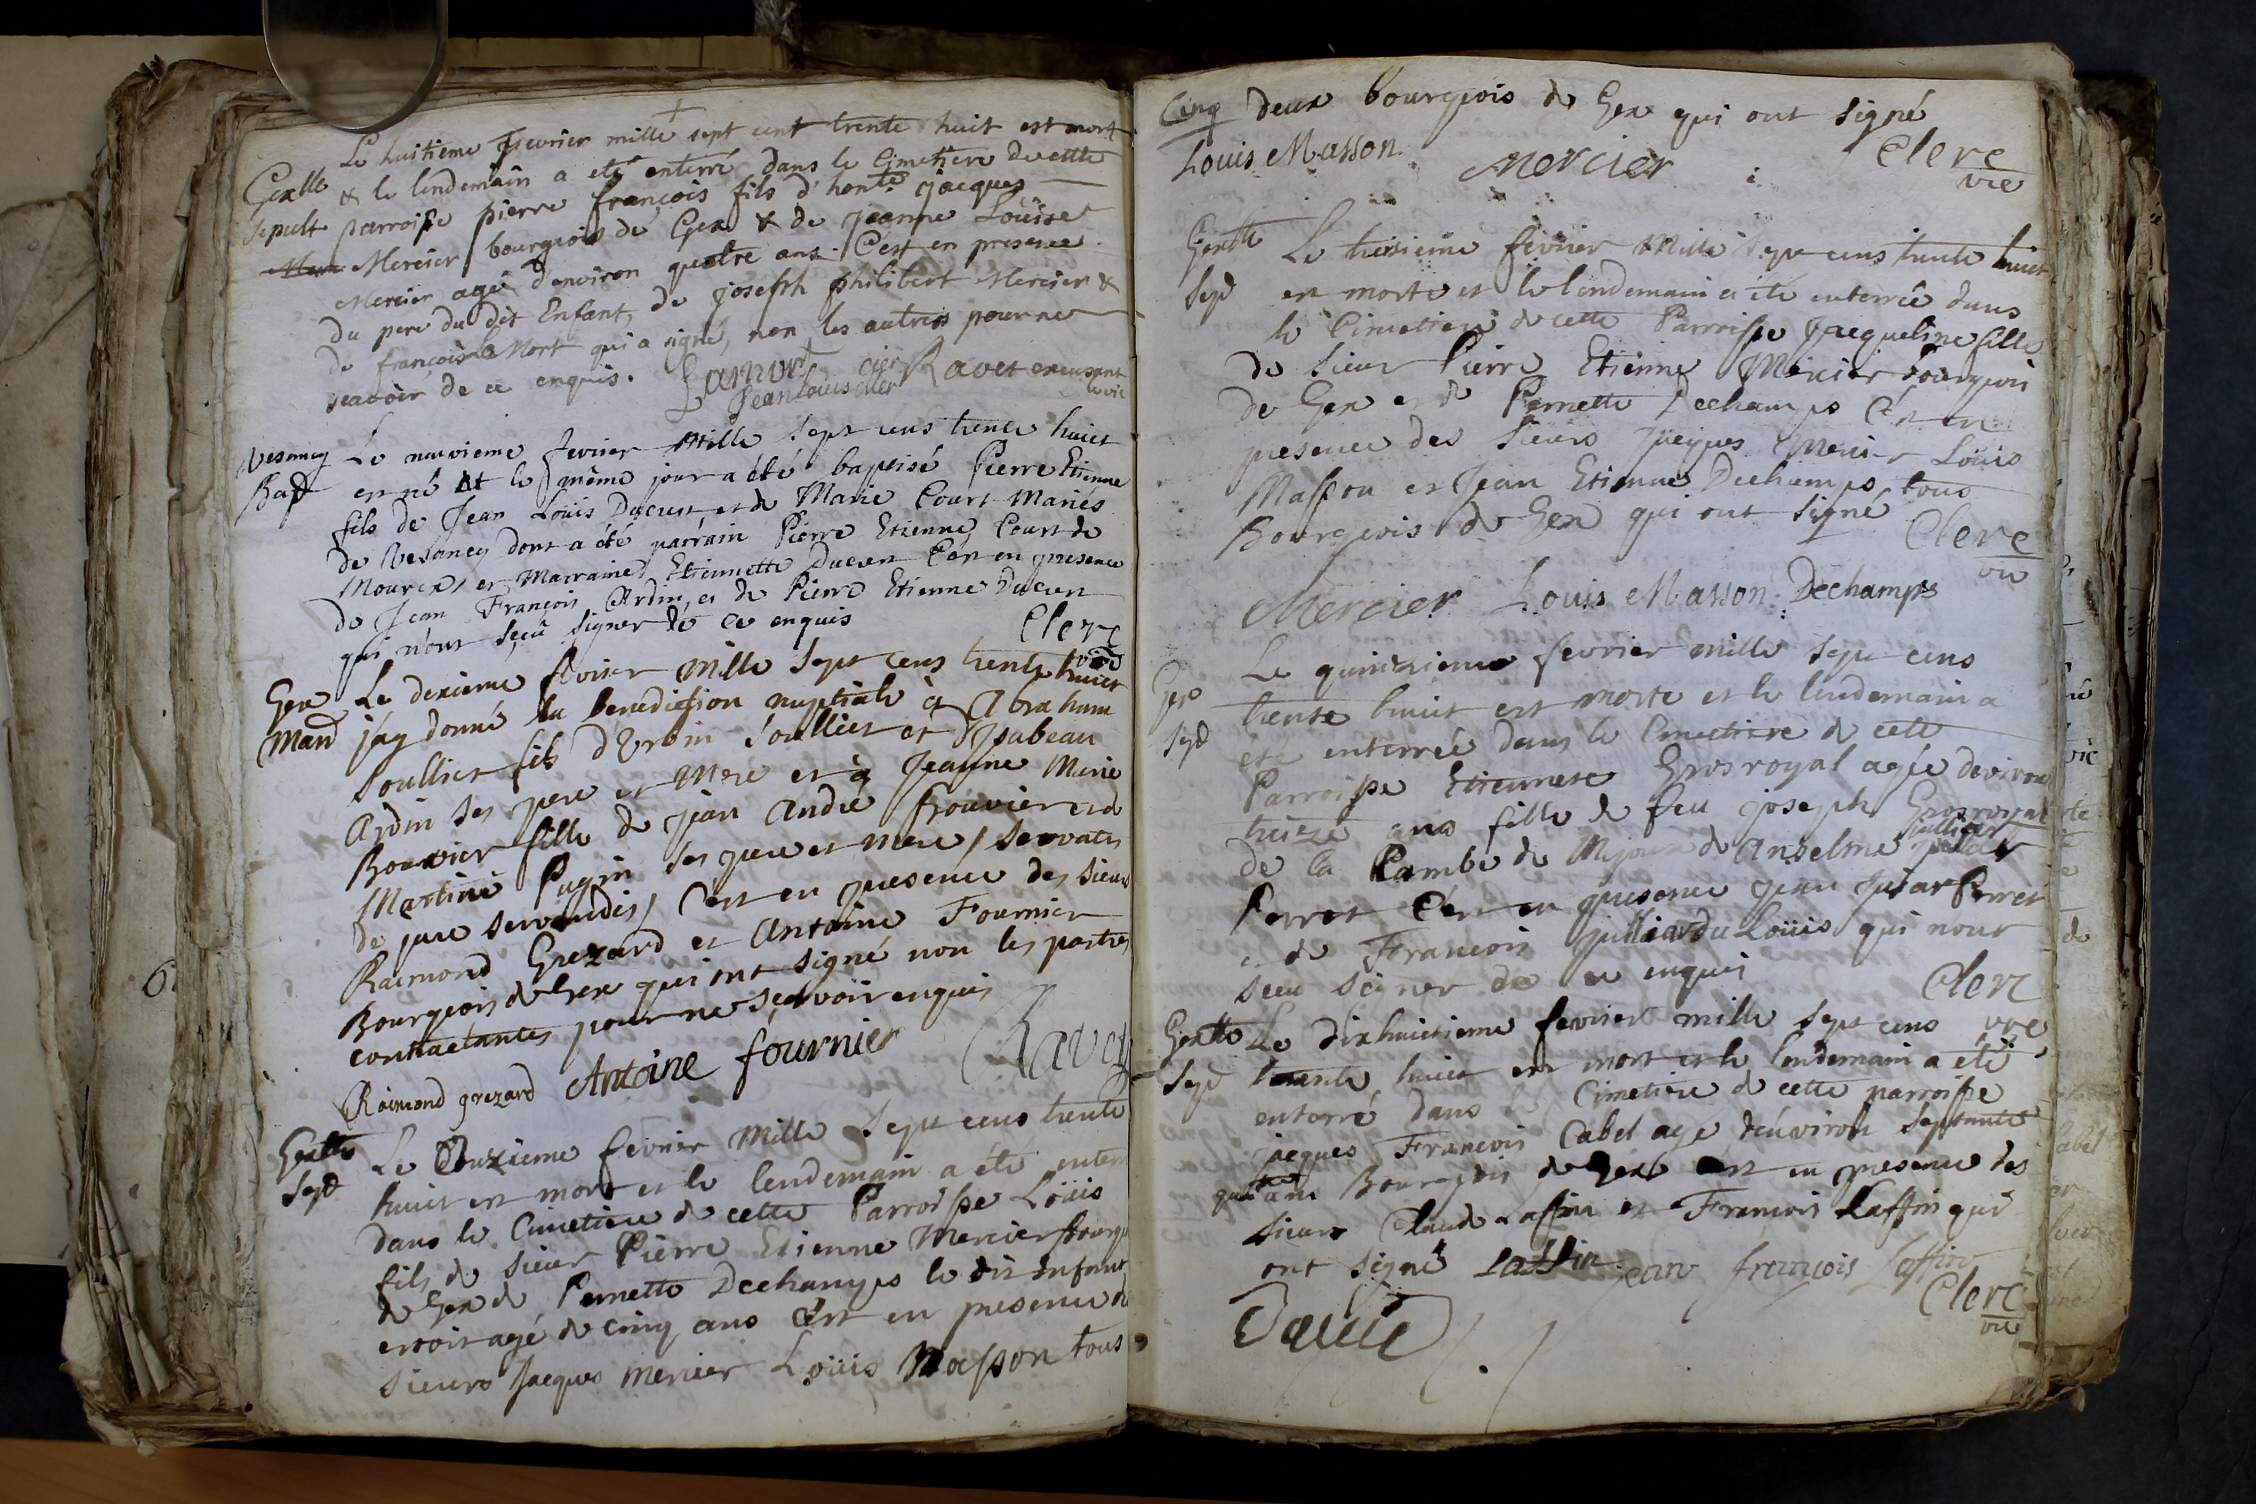 Le huitieme fevrier mille sept cent trente huit est mort
Gexlle & le lendemain a eté enterré dans le Cimetiere de cette
Sepult parroisse pierre françois fils d'honte jacques
Mercier bourgeois de Gex & de jeanne Loüise
Mercier agé d'environ quatre ans. C'est en presence
du pere du dit Enfant, de joseph philibert Mercier &
de françois Mort qui a signé, non les autres pour ne
scavoir de ce enquis. Lamort Ravet
Jean Louis
Vesancy Le neuvieme fevrier Mille sept cens trente huict
Bap est né et le même jour a été baptisé Pierre Etienne
fils de Jean Loüis Ducret et de Marie Court Mariés
de Vesancy dont a été parrain Pierre Etienne Court de
Mourex et Marraine Etiennette Ducret C'est en presence
de Jean François Ardin, et de Pierre Etienne Ducret
qui n'ont sçeu signer de ce enquis Clerc
vic
Gex Le dixieme fevrier Mille sept cens trente huict
Mand j'ay donné la benediction nuptiale à Abraham
Soullier fils d'Urbin Soullier et d'Ysabeau
Ardin ses pere et Mere et à Jeanne Marie
Bouvier fille de jean André Bouvier et de
Martine Pugin ses pere et mere / servatis
de jure servandis / C'est en presence des sieurs
Raimond Grezard et Antoine Fournier
Bourgeois de Gex qui ont signé non les parties
contractantes pour ne sçavoir enquis
Raimond grezard Antoine fournier Ravet
Gexlle Le Douzieme fevrier Mille sept cens trente
Sepd huict est mort et le lendemain a été enterré
dans le Cimetiere de cette Parroisse Loüis
fils de sieur Pierre Etienne Mercier Bourg
de Gex de Pernette Dechamps le dit Enfant
estoit agé de cinq ans C'est en presence de
sieurs Jacques Mercier Loüis Masson tous
Cinq deux bourgeois de Gex qui ont signé
Louis Masson Mercier Clerc
vic
Gexlle Le treisieme fevrier Mille sept cens trente huict
Sepd est morte et le lendemain a été enterrée dans
le Cimetiere de cette Parroisse Jacqueline fille
de Sieur Pierre Etienne Mercier Bourgeois
de Gex et de Pernette Dechamps C'est en
presence des Sieurs Jacques Mercier Loüis
Masson et Jean Etienne Dechamps tous
Bourgeois de Gex qui ont signé Clerc
vic
Mercier Louis Masson Dechamps
Le quinzieme fevrier mille sept cens
Gex trente huict est morte et le lendemain a
Sepd eté enterrée dans le Cimetiere de cette
Parroisse Etiennete Grosroyal agée d'environ
treize ans fille de feu joseph Grosroyal
de la Combe de Mijoux de Anselme julliard
Perret C'est en presence Jean Perret
et de François Julliard Loüis qui n'ont
sceu signer de ce enquis Clerc
vic
Gexlle Le dixhuictieme fevrier mille sept cens
Sepd trente huict est mort et le lendemain a été
enterré dans le Cimetiere de cette parroisse
jacques François Cabel age d'environ septante
quatre ans Bourgeois de Gex C'est en presence des
sieurs Claude Laffin et François Laffin qui
ont signé Laffin jean françois Laffin
Clerc
vic